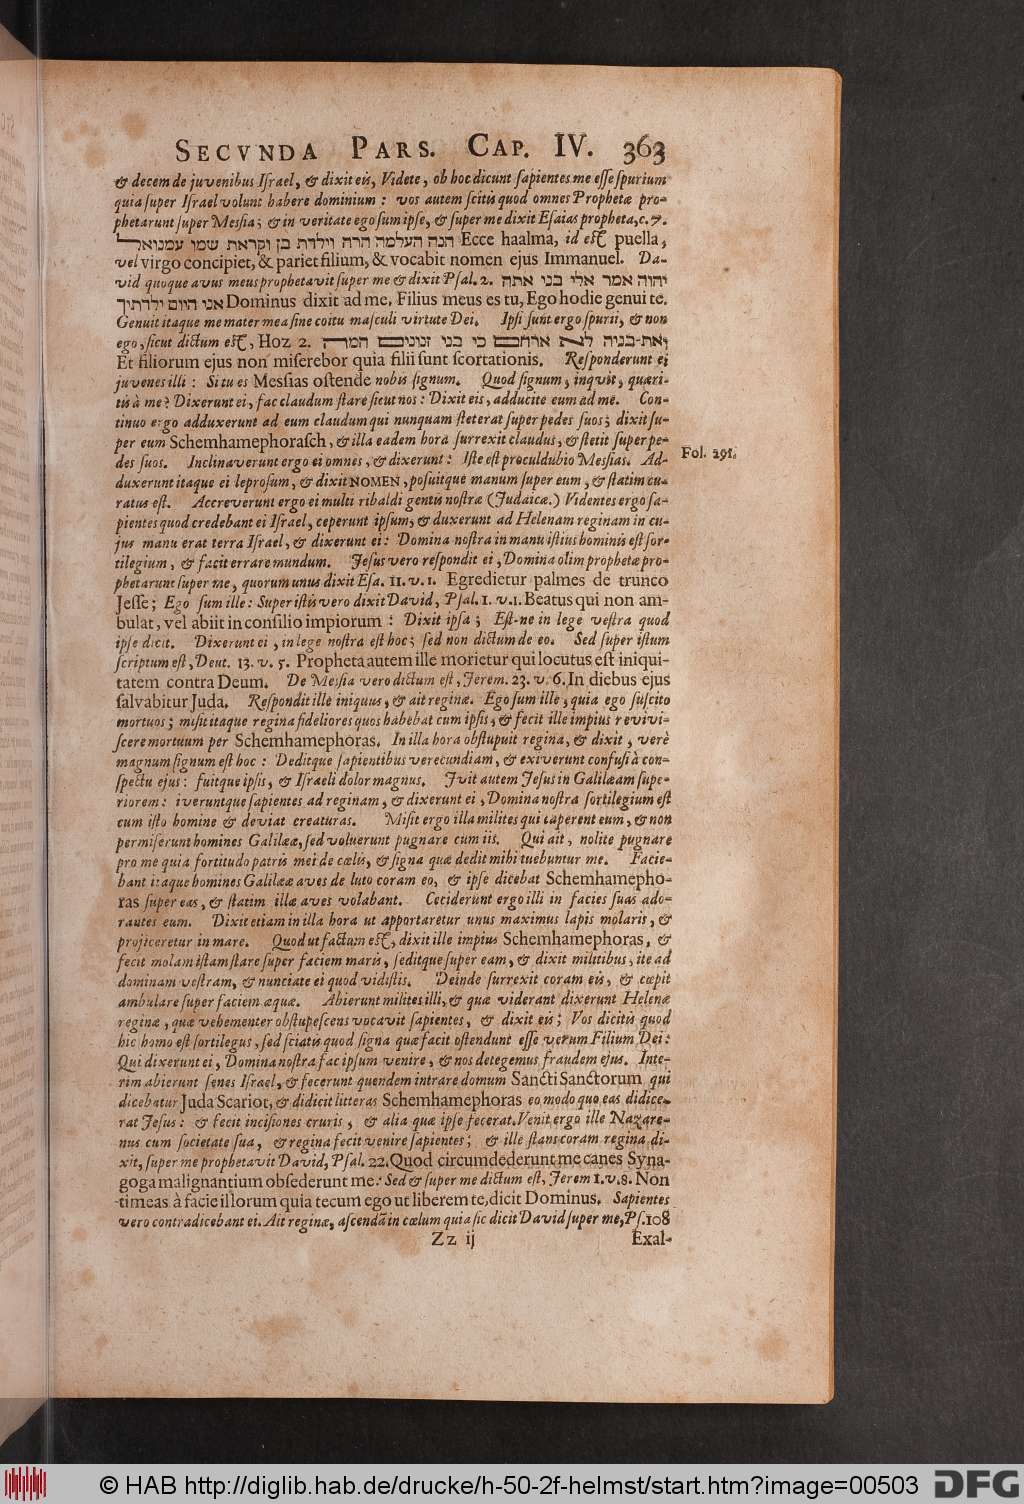 SECVNDA PARS. CAP. IV. 363
& decem de juvenibus Iſrael, & dixit eis, Videte, ob hoc dicunt ſapientes me eſſe ſpurium
quia ſuper Iſrael volunt habere dominium: vos autem ſcitis quod omnes Prophetæ pro-
phetarunt ſuper Meſsia; & in veritate ego ſum ipſe, & ſuper me dixit Eſaias propheta, c. 7.
הנה העלמה הרה וילדת בן וקראת שמו עמנואל Ecce haalma, id eſt puella,
vel virgo concipiet, & pariet filium, & vocabit nomen ejus Immanuel. Da-
vid quoque avus meus prophetavit ſuper me & dixit Pſal. 2. יהוה אמר אלי בני אתה
אני היום ילדתיך Dominus dixit ad me, Filius meus es tu, Ego hodie genui te.
Genuit itaque me mater mea ſine coitu maſculi virtute Dei. Ipſi ſunt ergo ſpurii, & non
ego, ſicut dictum eſt, Hoz 2. ואת-בניה לא ארחם כי בני זנונים המה
Et filiorum ejus non miſerebor quia filii ſunt ſcortationis. Reſponderunt ei
juvenes illi: Si tu es Meſſias oſtende nobis ſignum. Quod ſignum, inquit, quæri-
tis à me? Dixerunt ei, fac claudum ſtare ſicut nos: Dixit eis, adducite eum ad me. Con-
tinuo ergo adduxerunt ad eum claudum qui nunquam ſteterat ſuper pedes ſuos; dixit ſu-
per eum Schemhamephoraſch, & illa eadem hora ſurrexit claudus, & ſtetit ſuper pe-
des ſuos. Inclinaverunt ergo ei omnes, & dixerunt: Iſte eſt proculdubio Meſsias. Ad-
Fol. 291.
duxerunt itaque ei leproſum, & dixit NOMEN, poſuitque manum ſuper eum, & ſtatim cu-
ratus eſt. Accreverunt ergo ei multi ribaldi gentis noſtræ (Judaicæ.) Videntes ergo ſa-
pientes quod credebant ei Iſrael, ceperunt ipſum, & duxerunt ad Helenam reginam in cu-
jus manu erat terra Iſrael, & dixerunt ei: Domina noſtra in manu iſtius hominis eſt ſor-
tilegium, & facit errare mundum. Jeſus vero reſpondit ei, Domina olim prophetæ pro-
phetarunt ſuper me, quorum unus dixit Eſa. 11. v. 1. Egredietur palmes de trunco
Jeſſe; Ego ſum ille: Super iſtis vero dixit David, Pſal. 1. v. 1. Beatus qui non am-
bulat, vel abiit in conſilio impiorum: Dixit ipſa; Eſt-ne in lege veſtra quod
ipſe dicit. Dixerunt ei, in lege noſtra eſt hoc; ſed non dictum de eo. Sed ſuper iſtum
ſcriptum eſt, Deut. 13. v. 5. Propheta autem ille morietur qui locutus eſt iniqui-
tatem contra Deum. De Meſsia vero dictum eſt, Jerem. 23. v. 6. In diebus ejus
ſalvabitur Juda. Reſpondit ille iniquus, & ait reginæ. Ego ſum ille, quia ego ſuſcito
mortuos; miſit itaque regina fideliores quos habebat cum ipſis, & fecit ille impius revivi-
ſcere mortuum per Schemhamephoras. In illa hora obſtupuit regina, & dixit, verè
magnum ſignum eſt hoc: Deditque ſapientibus verecundiam, & exiverunt confuſi à con-
ſpectu ejus: fuitque ipſis, & Iſraeli dolor magnus. Jvit autem Jeſus in Galilæam ſupe-
riorem: iveruntque ſapientes ad reginam, & dixerunt ei, Domina noſtra ſortilegium eſt
cum iſto homine & deviat creaturas. Miſit ergo illa milites qui caperent eum, & non
permiſerunt homines Galilææ, ſed voluerunt pugnare cum iis. Qui ait, nolite pugnare
pro me quia fortitudo patris mei de cœlis, & ſigna quæ dedit mihi tuebuntur me. Facie-
bant itaque homines Galilææ aves de luto coram eo, & ipſe dicebat Schemhamepho-
ras ſuper eas, & ſtatim illæ aves volabant. Ceciderunt ergo illi in facies ſuas ado-
rantes eum. Dixit etiam in illa hora ut apportaretur unus maximus lapis molaris, &
projiceretur in mare. Quod ut factum eſt, dixit ille impius Schemhamephoras, &
fecit molam iſtam ſtare ſuper faciem maris, ſeditque ſuper eam, & dixit militibus, ite ad
dominam veſtram, & nunciate ei quod vidiſtis. Deinde ſurrexit coram eis, & cœpit
ambulare ſuper faciem aquæ. Abierunt milites illi, & quæ viderant dixerunt Helenæ
reginæ, quæ vehementer obſtupeſcens vocavit ſapientes, & dixit eis; Vos dicitis quod
hic homo eſt ſortilegus, ſed ſciatis quod ſigna quæ facit oſtendunt eſſe verum Filium Dei:
Qui dixerunt ei, Domina noſtra fac ipſum venire, & nos detegemus fraudem ejus. Inte-
rim abierunt ſenes Iſrael, & fecerunt quendem intrare domum Sancti Sanctorum qui
dicebatur Juda Scariot, & didicit litteras Schemhamephoras eo modo quo eas didice-
rat Jeſus: & fecit inciſiones cruris, & alia quæ ipſe fecerat. Venit ergo ille Nazare-
nus cum ſocietate ſua, & regina fecit venire ſapientes; & ille ſtans coram regina di-
xit, ſuper me prophetavit David, Pſal. 22. Quod circumdederunt me canes Syna-
goga malignantium obſederunt me: Sed & ſuper me dictum eſt, Jerem 1. v. 8. Non
timeas à facie illorum quia tecum ego ut liberem te, dicit Dominus. Sapientes
vero contradicebant ei. Ait reginæ, aſcendã in cœlum quia ſic dicit David ſuper me, Pſ. 108
Zz ij Exal-
© HAB http://diglib.hab.de/drucke/h-50-2f-helmst/start.htm?image=00503 DFG